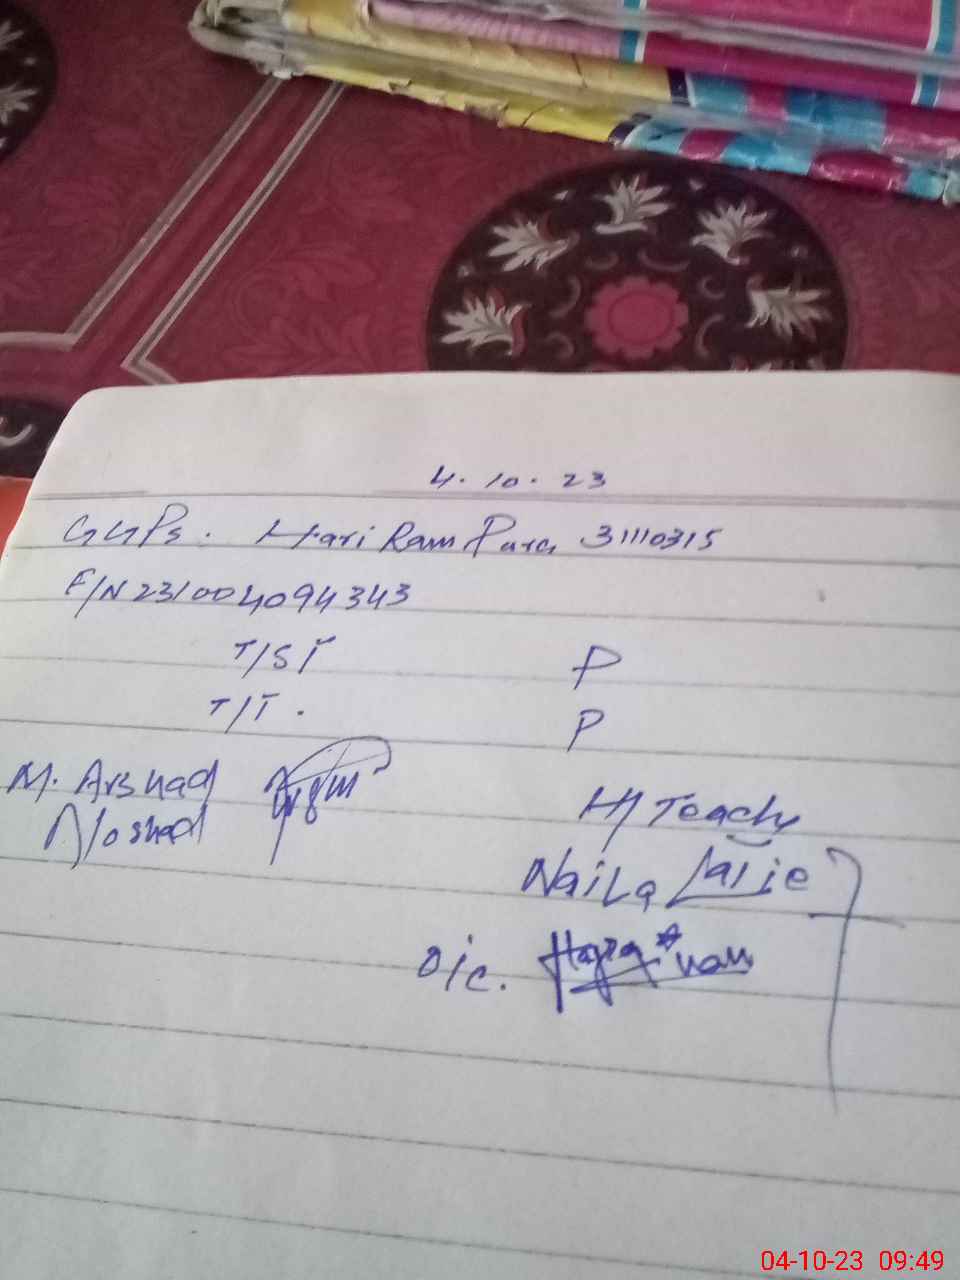 4.10.23
GGPs. Hari Ram Pura 31110315
F/N 231004094343
T/ST P
T/T. P
M. Arshad
Noshad
H/Teach
Naila
O/C.
04-10-23 09:49